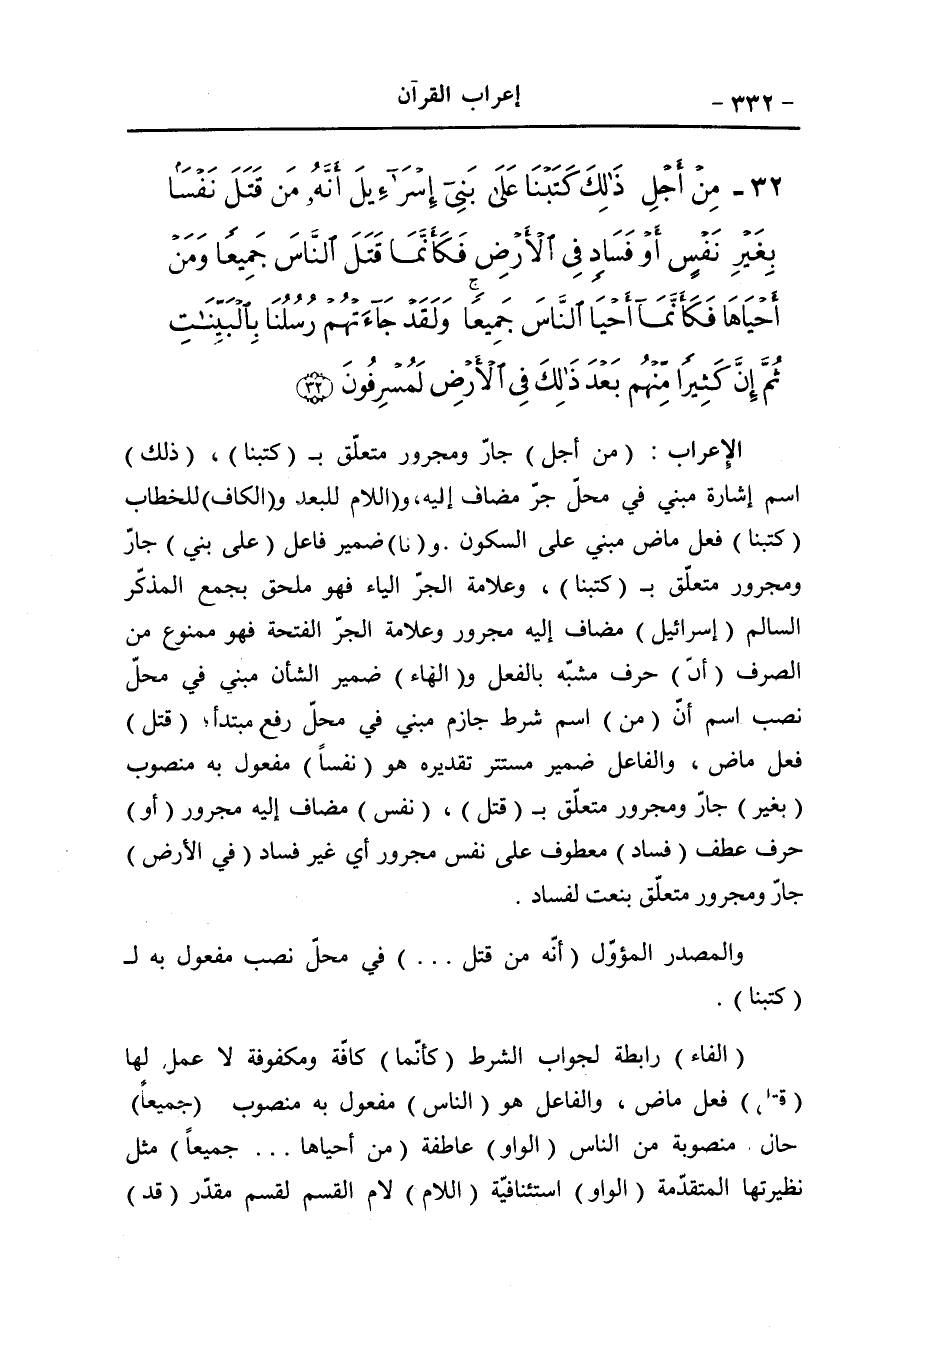 - ٣٣٢ - إعراب القرآن
٣٢ - مِنْ أَجْلِ ذَٰلِكَ كَتَبْنَا عَلَىٰ بَنِىٓ إِسْرَٰٓءِيلَ أَنَّهُۥ مَن قَتَلَ نَفْسًۢا
بِغَيْرِ نَفْسٍ أَوْ فَسَادٍ فِى ٱلْأَرْضِ فَكَأَنَّمَا قَتَلَ ٱلنَّاسَ جَمِيعًا وَمَنْ
أَحْيَاهَا فَكَأَنَّمَآ أَحْيَا ٱلنَّاسَ جَمِيعًا ۚ وَلَقَدْ جَآءَتْهُمْ رُسُلُنَا بِٱلْبَيِّنَٰتِ
ثُمَّ إِنَّ كَثِيرًا مِّنْهُم بَعْدَ ذَٰلِكَ فِى ٱلْأَرْضِ لَمُسْرِفُونَ (٣٢)
الإعراب : ( من أجل ) جارّ ومجرور متعلّق بـ ( كتبنا ) ، ( ذلك )
اسم إشارة مبني في محلّ جرّ مضاف إليه، و(اللام للبعد و(الكاف)للخطاب
( كتبنا ) فعل ماض مبني على السكون .و( نا) ضمير فاعل ( على بني ) جارّ
ومجرور متعلّق بـ ( كتبنا ) ، وعلامة الجرّ الياء فهو ملحق بجمع المذكّر
السالم ( إسرائيل ) مضاف إليه مجرور وعلامة الجرّ الفتحة فهو ممنوع من
الصرف ( أنّ ) حرف مشبّه بالفعل و( الهاء ) ضمير الشأن مبني في محلّ
نصب اسم أنّ ( من ) اسم شرط جازم مبني في محلّ رفع مبتدأ، ( قتل )
فعل ماض ، والفاعل ضمير مستتر تقديره هو ( نفساً ) مفعول به منصوب
( بغير ) جارّ ومجرور متعلّق بـ ( قتل ) ، ( نفس ) مضاف إليه مجرور ( أو )
حرف عطف ( فساد ) معطوف على نفس مجرور أي غير فساد ( في الأرض )
جارّ ومجرور متعلّق بنعت لفساد .
والمصدر المؤوّل ( أنّه من قتل . . . ) في محلّ نصب مفعول به لـ
( كتبنا ) .
( الفاء ) رابطة لجواب الشرط ( كأنّما ) كافّة ومكفوفة لا عمل لها
فعل ماض ، والفاعل هو ( الناس ) مفعول به منصوب (جميعاً)
حال منصوبة من الناس ( الواو ) عاطفة ( من أحياها . . . جميعاً ) مثل
نظيرتها المتقدّمة ( الواو ) استئنافيّة ( اللام ) لام القسم لقسم مقدّر ( قد )